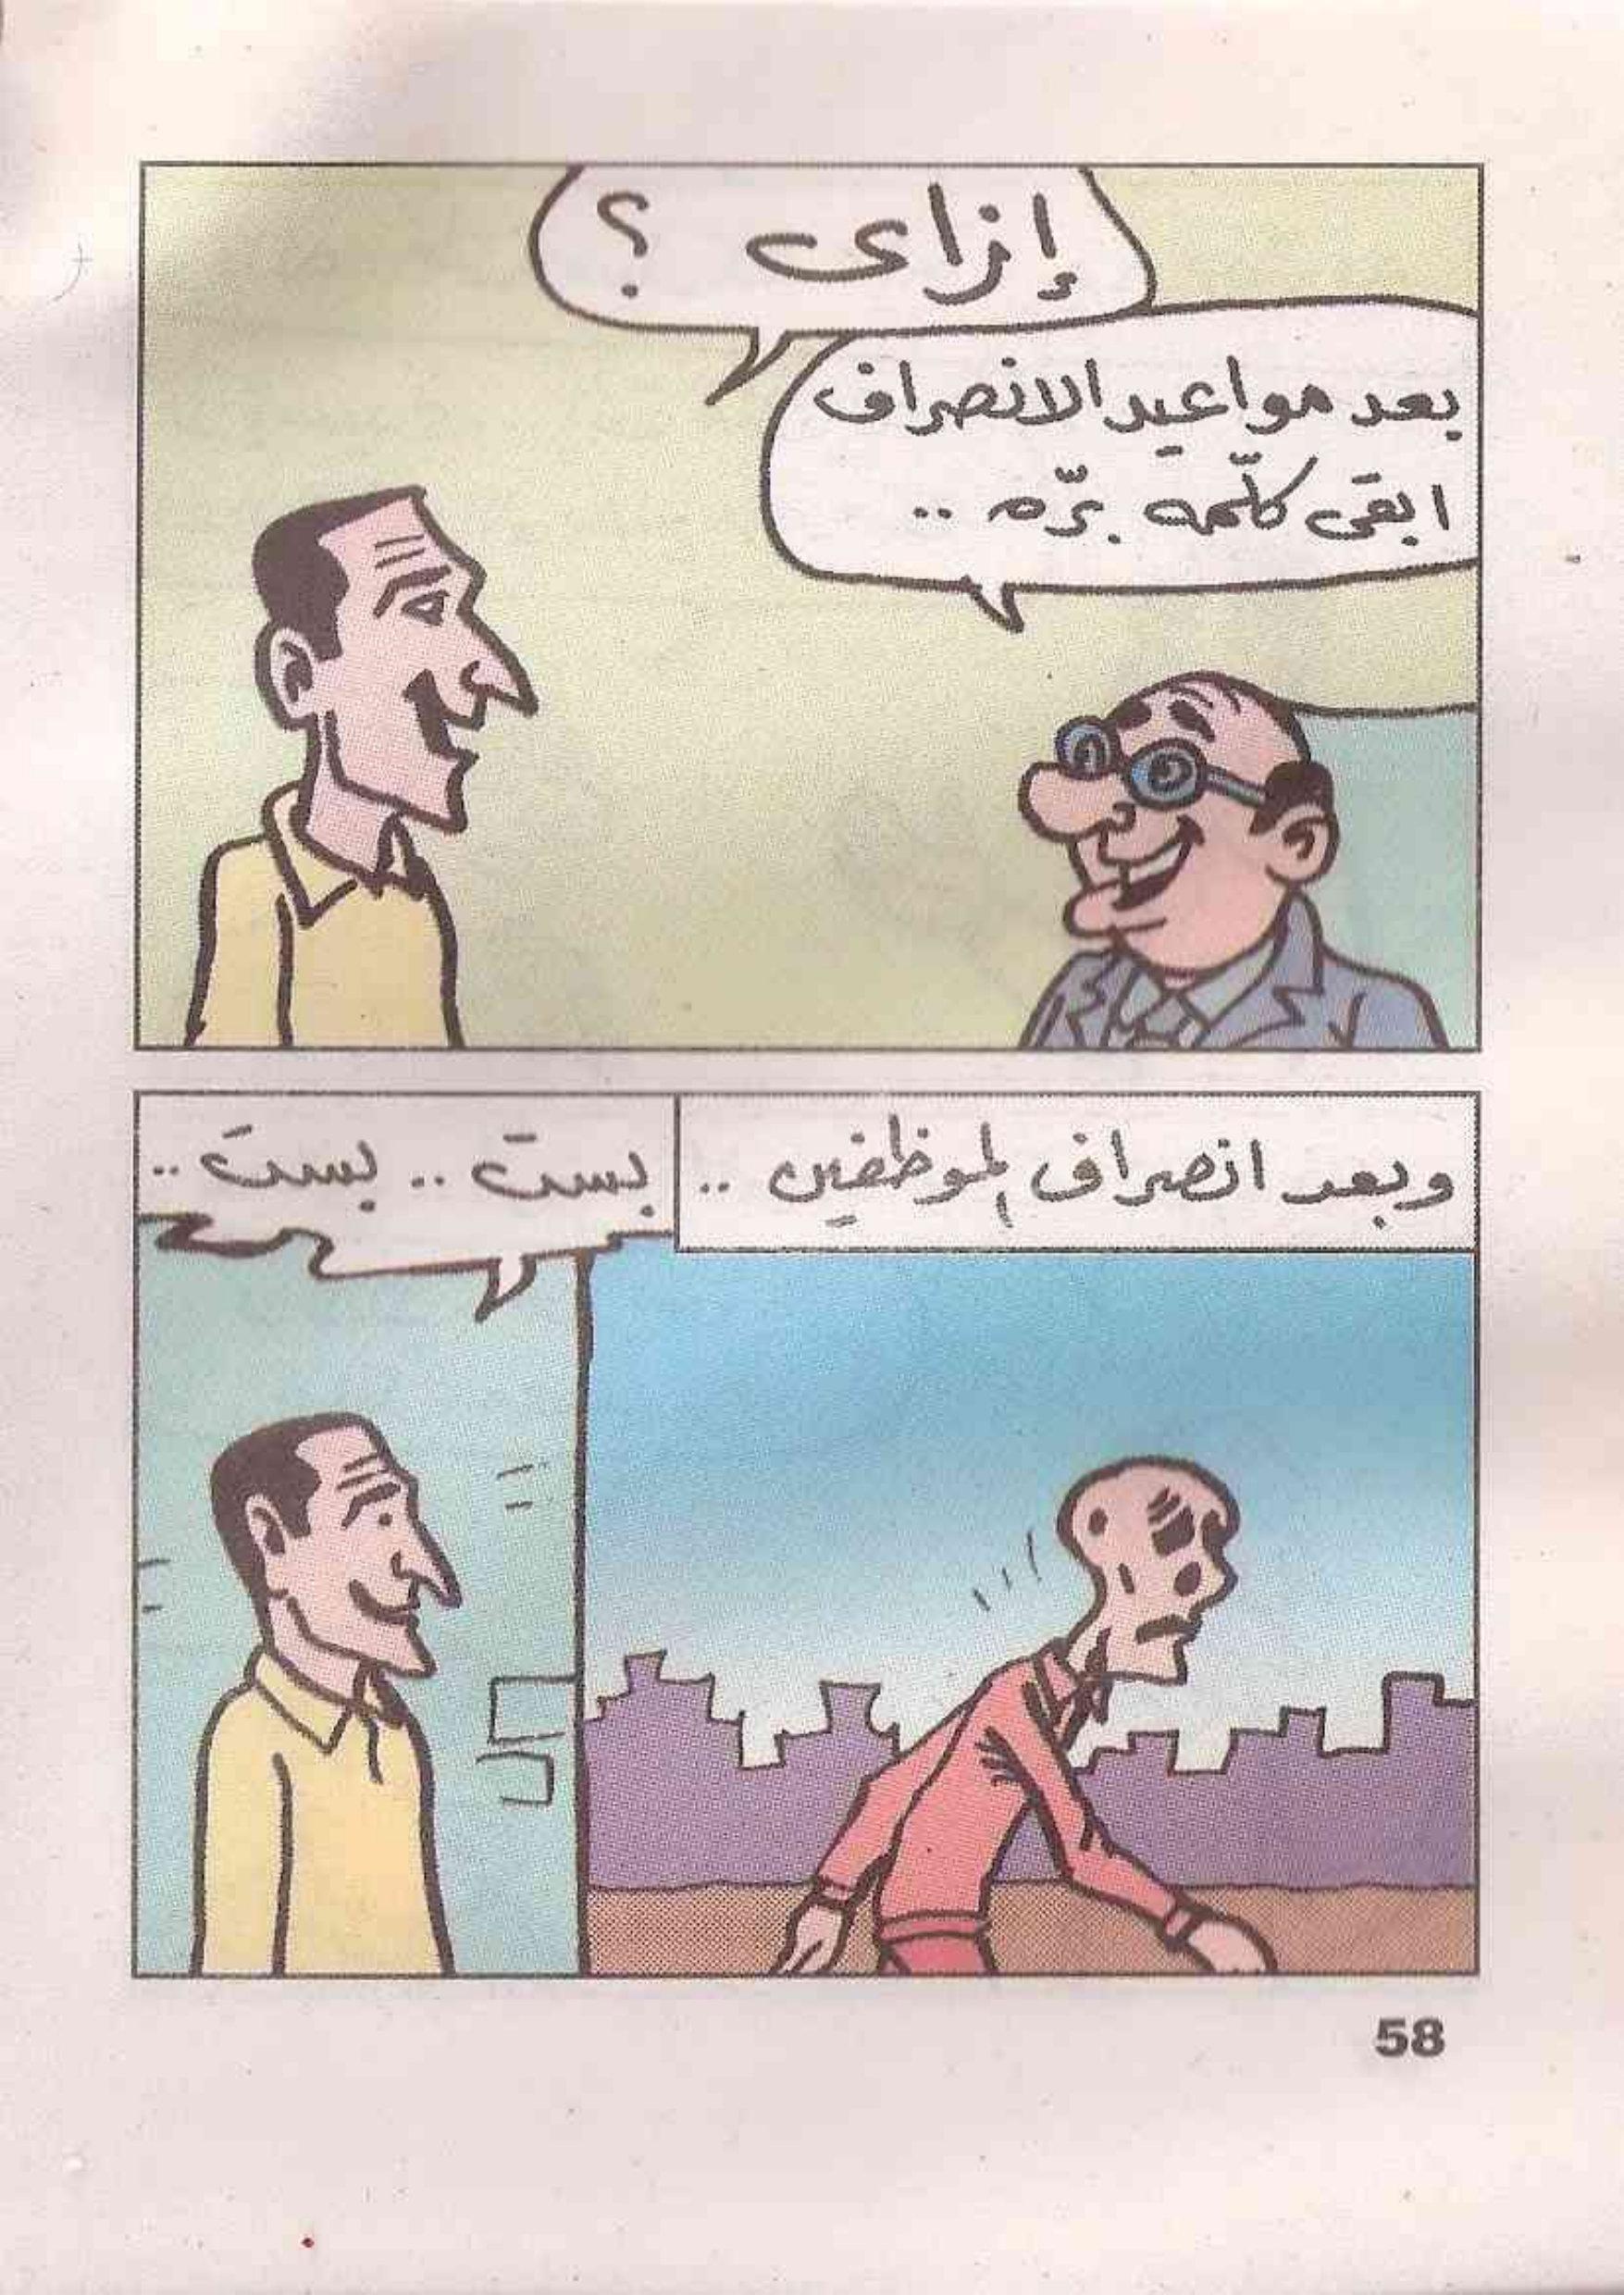 إزاى ؟
بعد مواعيد الانصراف
ابقى كلّمه برّه ..
وبعد انصراف الموظفين ..
بست .. بست ..
58